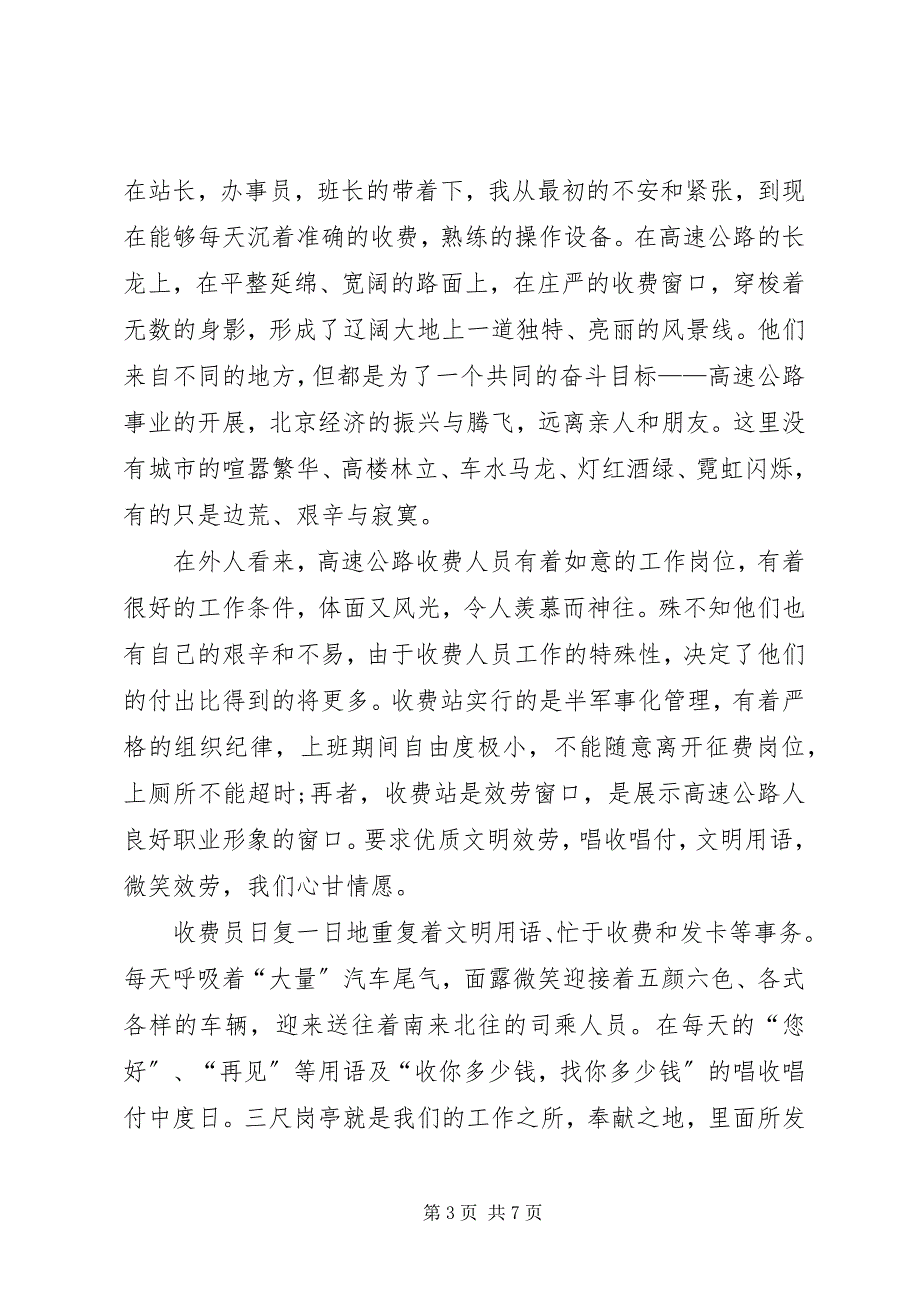 在站长，办事员，班长的带着下，我从最初的不安和紧张，到现
在能够每天沉着准确的收费，熟练的操作设备。在高速公路的长
龙上，在平整延绵、宽阔的路面上，在庄严的收费窗口，穿梭着
无数的身影，形成了辽阔大地上一道独特、亮丽的风景线。他们
来自不同的地方，但都是为了一个共同的奋斗目标——高速公路
事业的开展，北京经济的振兴与腾飞，远离亲人和朋友。这里没
有城市的喧嚣繁华、高楼林立、车水马龙、灯红酒绿、霓虹闪烁，
有的只是边荒、艰辛与寂寞。
在外人看来，高速公路收费人员有着如意的工作岗位，有着
很好的工作条件，体面又风光，令人羡慕而神往。殊不知他们也
有自己的艰辛和不易，由于收费人员工作的特殊性，决定了他们
的付出比得到的将更多。收费站实行的是半军事化管理，有着严
格的组织纪律，上班期间自由度极小，不能随意离开征费岗位，
上厕所不能超时;再者，收费站是效劳窗口，是展示高速公路人
良好职业形象的窗口。要求优质文明效劳，唱收唱付，文明用语，
微笑效劳，我们心甘情愿。
收费员日复一日地重复着文明用语、忙于收费和发卡等事务。
每天呼吸着“大量〞汽车尾气，面露微笑迎接着五颜六色、各式
各样的车辆，迎来送往着南来北往的司乘人员。在每天的“您
好〞、“再见〞等用语及“收你多少钱，找你多少钱〞的唱收唱
付中度日。三尺岗亭就是我们的工作之所，奉献之地，里面所发
第 3 页 共 7 页